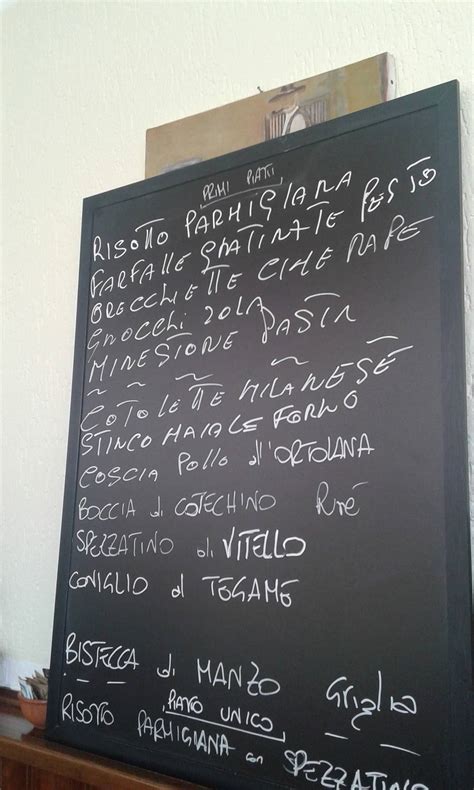 PRIMI PIATTI
RISOTTO PARMIGIANA
FARFALLE GRATINATE PESTO
ORECCHIETTE CIME RAPE
GNOCCHI ZOLA
MINESTONE PASTA
COTOLETTE MILANESE
STINCO MAIALE FORNO
COSCIA Pollo all'ORTOLANA
BOCCIA di COTECHINO Purè
SPEZZATINO di VITELLO
CONIGLIO al TEGAME
BISTECCA di MANZO Griglia
PIATTO UNICO
RISOTTO PARMIGIANA con SPEZZATINO